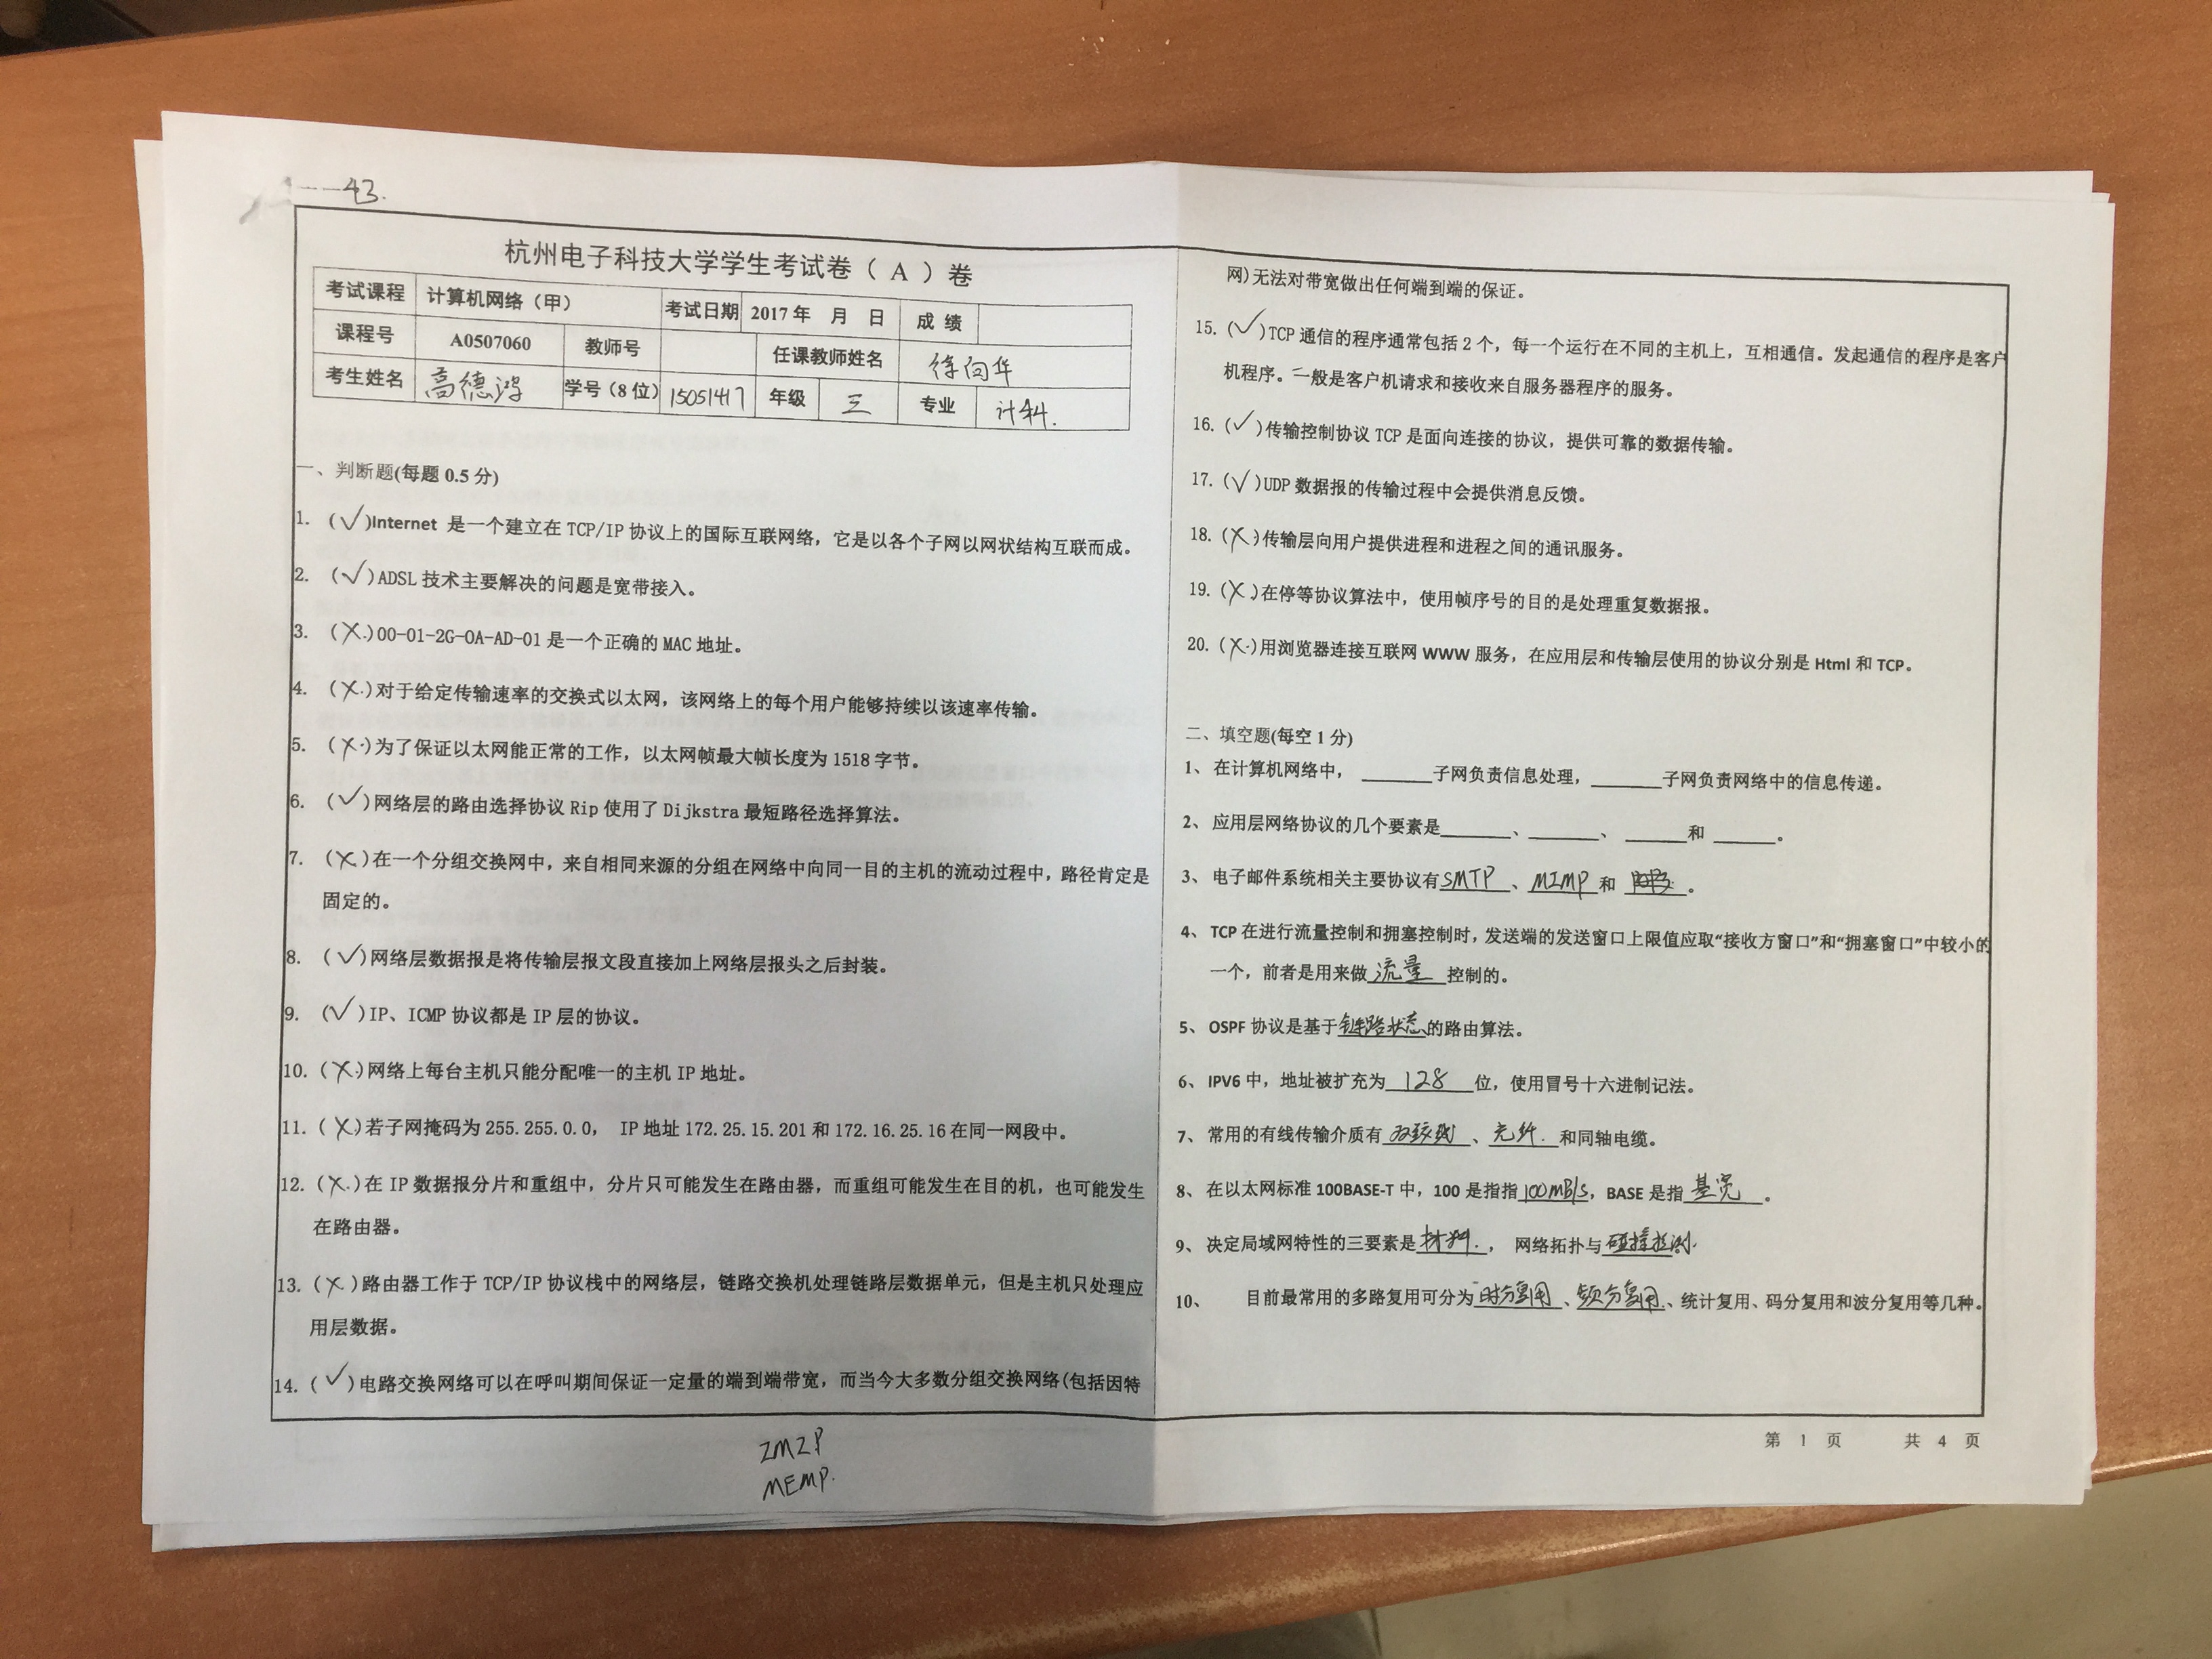 43.
杭州电子科技大学学生考试卷（ A ）卷
考试课程 计算机网络（甲） 考试日期 2017年 月 日 成绩
课程号 A0507060 教师号 任课教师姓名 徐向华
考生姓名 高德鸿 学号（8位） 15051417 年级 三 专业 计科.
一、判断题(每题0.5分)
1. (✓)Internet 是一个建立在 TCP/IP 协议上的国际互联网络，它是以各个子网以网状结构互联而成。
2. (✓)ADSL 技术主要解决的问题是宽带接入。
3. (X.)00-01-2G-0A-AD-01 是一个正确的 MAC 地址。
4. (X.)对于给定传输速率的交换式以太网，该网络上的每个用户能够持续以该速率传输。
5. (X.)为了保证以太网能正常的工作，以太网帧最大帧长度为 1518 字节。
6. (✓)网络层的路由选择协议 Rip 使用了 Dijkstra 最短路径选择算法。
7. (X.)在一个分组交换网中，来自相同来源的分组在网络中向同一目的主机的流动过程中，路径肯定是
固定的。
8. (✓)网络层数据报是将传输层报文段直接加上网络层报头之后封装。
9. (✓)IP、ICMP 协议都是 IP 层的协议。
10. (X.)网络上每台主机只能分配唯一的主机 IP 地址。
11. (X.)若子网掩码为 255.255.0.0， IP 地址 172.25.15.201 和 172.16.25.16 在同一网段中。
12. (X.)在 IP 数据报分片和重组中，分片只可能发生在路由器，而重组可能发生在目的机，也可能发生
在路由器。
13. (X.)路由器工作于 TCP/IP 协议栈中的网络层，链路交换机处理链路层数据单元，但是主机只处理应
用层数据。
14. (✓)电路交换网络可以在呼叫期间保证一定量的端到端带宽，而当今大多数分组交换网络(包括因特
ZMZP
MEMP.
网)无法对带宽做出任何端到端的保证。
15. (✓)TCP 通信的程序通常包括 2 个，每一个运行在不同的主机上，互相通信。发起通信的程序是客户
机程序。一般是客户机请求和接收来自服务器程序的服务。
16. (✓)传输控制协议 TCP 是面向连接的协议，提供可靠的数据传输。
17. (✓)UDP 数据报的传输过程中会提供消息反馈。
18. (X.)传输层向用户提供进程和进程之间的通讯服务。
19. (X.)在停等协议算法中，使用帧序号的目的是处理重复数据报。
20. (X.)用浏览器连接互联网 WWW 服务，在应用层和传输层使用的协议分别是 Html 和 TCP。
二、填空题(每空 1 分)
1、在计算机网络中， ______子网负责信息处理，______子网负责网络中的信息传递。
2、应用层网络协议的几个要素是______、______、 ______和 ______。
3、电子邮件系统相关主要协议有SMTP、MIMP和 。
4、TCP 在进行流量控制和拥塞控制时，发送端的发送窗口上限值应取“接收方窗口”和“拥塞窗口”中较小的
一个，前者是用来做 流量 控制的。
5、OSPF 协议是基于链路状态的路由算法。
6、IPV6 中，地址被扩充为 128 位，使用冒号十六进制记法。
7、常用的有线传输介质有 双绞线 、光纤. 和同轴电缆。
8、在以太网标准 100BASE-T 中，100 是指指100MB/s，BASE 是指基宽。
9、决定局域网特性的三要素是材料.， 网络拓扑与碰撞检测.
10、 目前最常用的多路复用可分为时分复用、频分复用.、统计复用、码分复用和波分复用等几种。
第 1 页 共 4 页